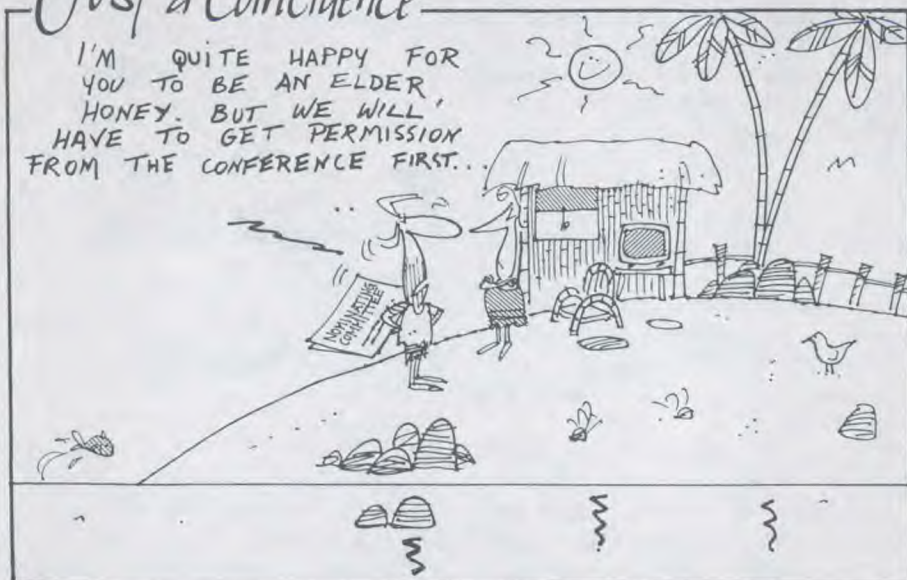 Just a Coincidence
I'M QUITE HAPPY FOR
YOU TO BE AN ELDER,
HONEY. BUT WE WILL
HAVE TO GET PERMISSION
FROM THE CONFERENCE FIRST...
NOMINATING
COMMITTEE